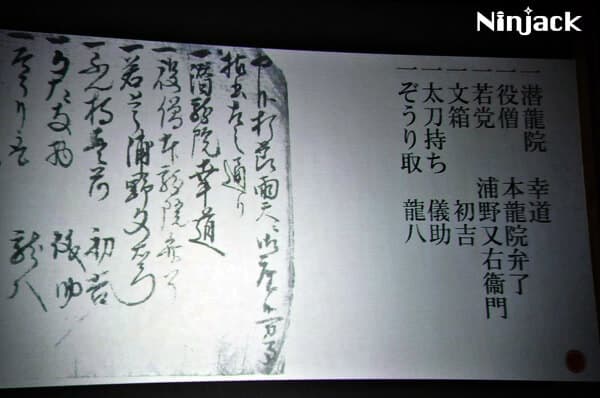 Ninjack
一 潜龍院 幸道
一 役僧 本龍院弁了
一 若党 浦野又右衞門
一 文箱 初吉
一 太刀持ち 儀助
一 ぞうり取 龍八
雨天
左之通り
一潜龍院幸道
一役僧本龍院弁了
一若とう浦野又右衛門
一 初吉
一 儀助
一そうり取 龍八